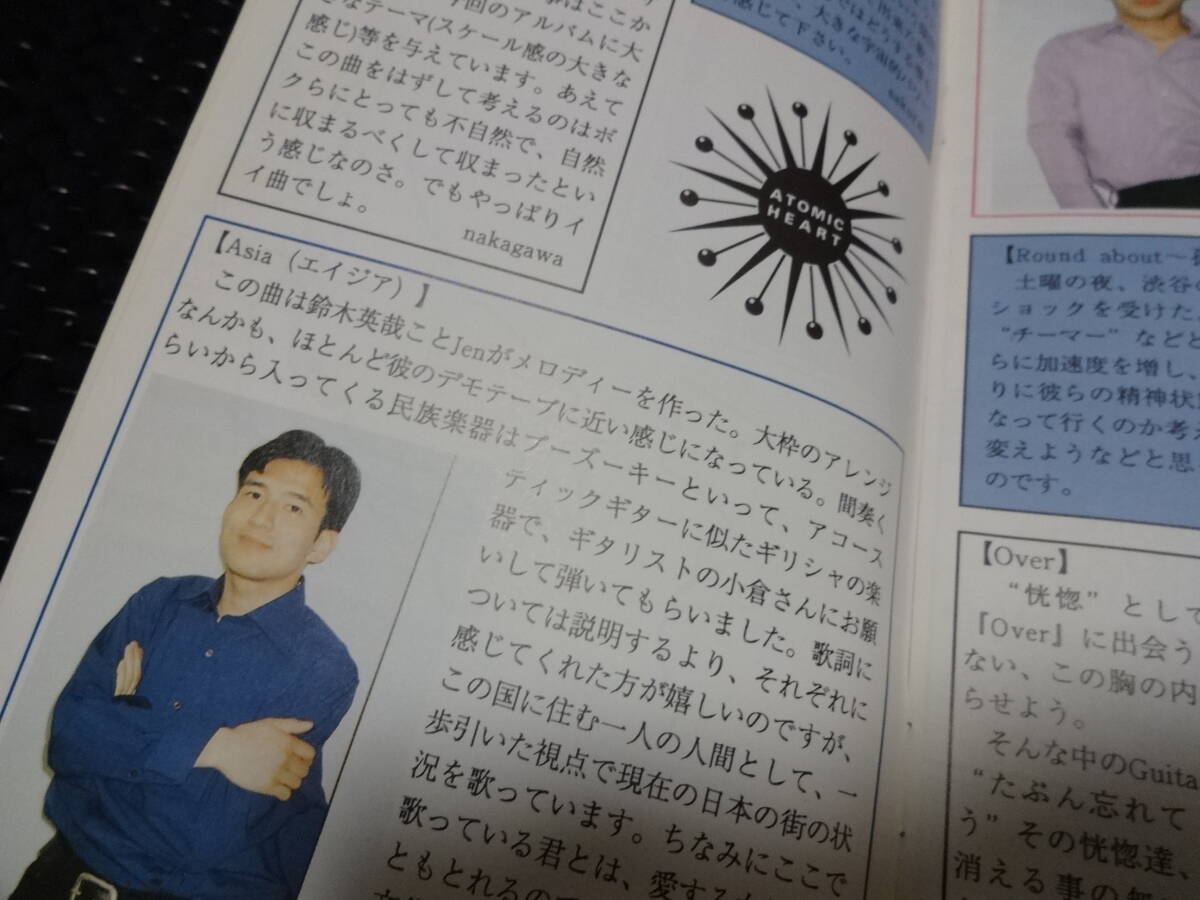 今回のアルバムに大
きなテーマ(スケール感の大きな
感じ)等を与えています。あえて
この曲をはずして考えるのはボ
クらにとっても不自然で、自然
に収まるべくして収まったとい
う感じなのさ。でもやっぱりイ
イ曲でしょ。
nakagawa
大きな宇宙的
感じて下さい。
ATOMIC
HEART
【Asia（エイジア）】
この曲は鈴木英哉ことJenがメロディーを作った。大枠のアレンジ
なんかも、ほとんど彼のデモテープに近い感じになっている。間奏く
らいから入ってくる民族楽器はブーズーキーといって、アコース
ティックギターに似たギリシャの楽
器で、ギタリストの小倉さんにお願
いして弾いてもらいました。歌詞に
ついては説明するより、それぞれに
感じてくれた方が嬉しいのですが、
この国に住む一人の人間として、一
歩引いた視点で現在の日本の街の状
況を歌っています。ちなみにここで
歌っている君とは、愛する
ともとれるの
【Round about～
土曜の夜、渋谷の
ショックを受けた
“チーマー”などと
らに加速度を増し、
りに彼らの精神状
なって行くのか考
変えようなどと思
のです。
【Over】
“恍惚”として
『Over』に出会う
ない、この胸の内
らせよう。
そんな中のGuita
“たぶん忘れて
う”その恍惚達、
消える事の無